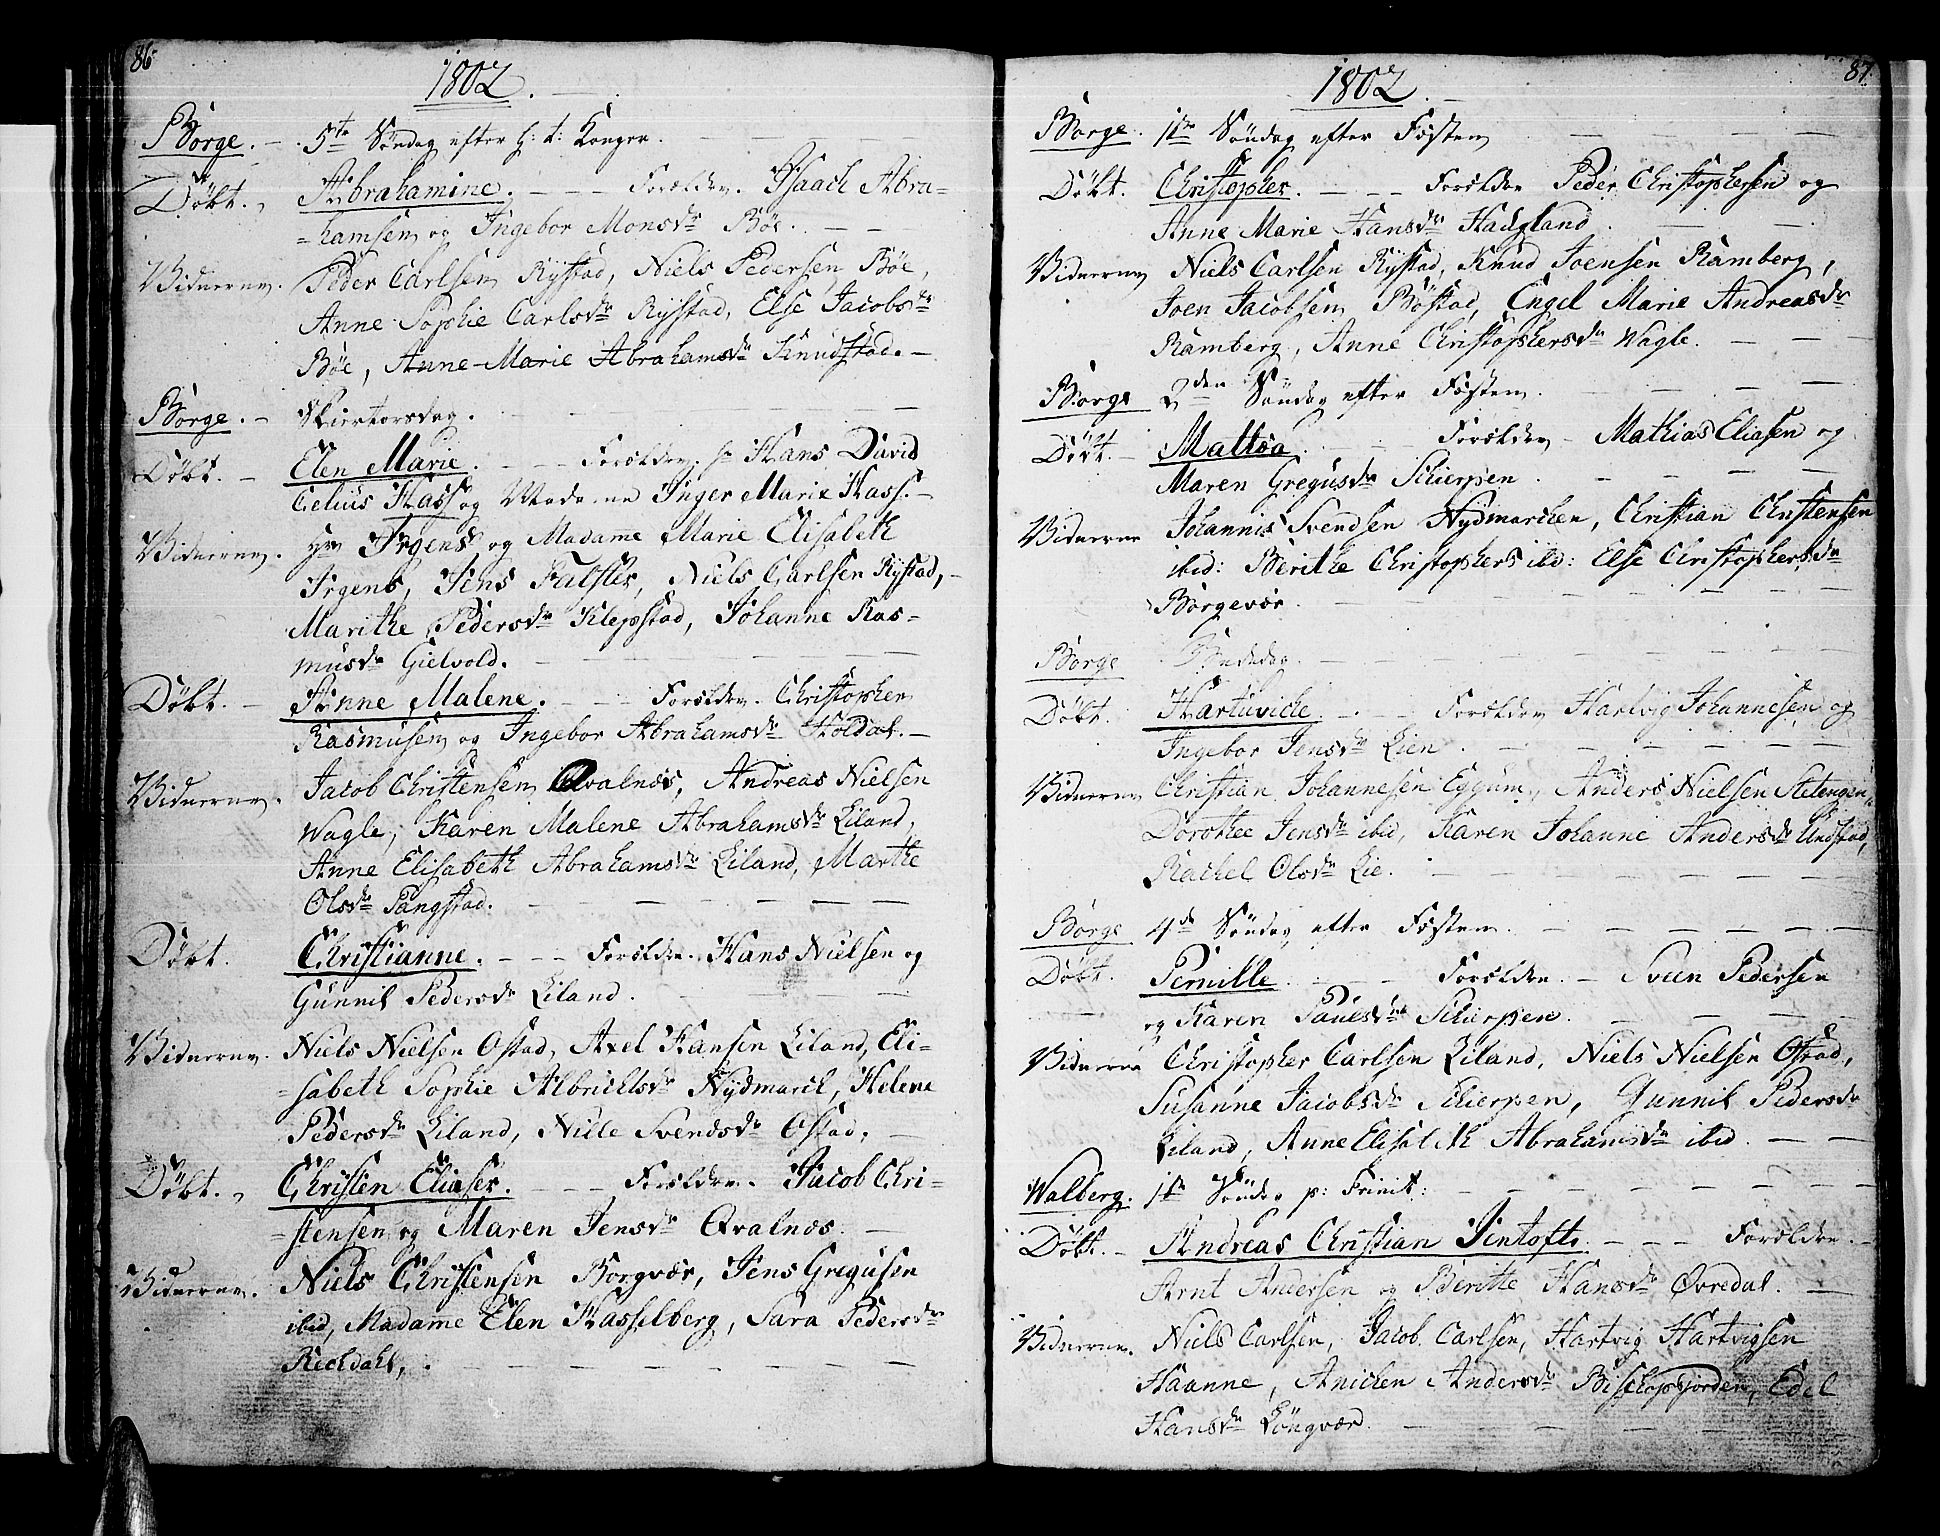 86
1802.
Borge. – 5te Søndag efter H: t: Konger.
Døbt. Abrahamine. – Forældre. Isaach Abra-
=hamsen og Ingebor Monsdr Bøe.
Vidnerne. Peder Carlsen Rystad, Niels Pedersen Bøe,
Anne Sophie Carlsdr Rystad, Else Jacobsdr
Bøe, Anne Marie Abrahamsdr Knudstad. –
Borge. – Skiertorsdag.
Døbt. – Elen Marie. – Forældre. Hr Hans David
Celius Hass og Madame Inger Marie Hass. –
Vidnerne. Hr Irgens og Madame Marie Elisabeth
Irgens, Jens Falster, Niels Carlsen Rystad, –
Marithe Pedersdr Klepstad, Johanne Ras-
musdr Gielvold.
Døbt. – Anne Malene. – Forældre. Christopher
Rasmusen og Ingebor Abrahamsdr Holdal. –
Vidnerne. Jacob Christensen Qvalnæs, Andreas Nielsen
Wagle, Karen Malene Abrahamsdr Liland,
Anne Elisabeth Abrahamsdr Liland, Marthe
Olsdr Pangstad.
Døbt. Christianne. – Forældre. Hans Nielsen og
Gunnil Pedersdr Liland.
Vidnerne. Niels Nielsen Ostad, Axel Hansen Liland, Eli-
=sabeth Sophie Albrichtsdr Nydmarck, Helene
Pedersdr Liland, Nille Svendsdr Ostad.
Døbt. Christen Eliaser. – Forældre. Jacob Chri-
=stensen og Maren Jensdr Qvalnæs.
Vidnerne. Niels Christensen Borgvær, Jens Gregusen
ibid, Madame Elen Hasselberg, Sara Pedersdr
Rechdahl,
87.
1802.
Borge. 1ste Søndag efter Fasten
Døbt. Christopher. – Forældre Peder Christophersen og
Anne Marie Hansdr Haugland.
Vidnerne Niels Carlsen Rystad, Knud Joensen Ramberg,
Joen Jacobsen Bøstad, Engel Marie Andreasdr
Ramberg, Anne Christophersdr Wagle.
Borge 2den Søndag efter Fasten.
Døbt. – Mattea. Forældre – Mathias Eliasen og
Maren Gregusdr Schierpen.
Vidnerne Johannis Svendsen Nydmarchen, Christian Christensen
ibid: Berithe Christophers ibd: Else Christophersdr
Borgevær.
Borge Bededag.
Døbt. Hartuviche. Forældre Hartvig Johannesen og
Ingebor Jensdr Lien.
Vidnerne Christian Johannesen Eggum, Anders Nielsen Stetengen,
Dorothee Jensdr ibid, Karen Johanne Andersdr Undstad,
Rachel Olsdr Lie.
Borge 4de Søndag efter Fasten.
Døbt. Pernille. Forældre. – Sveen Pedersen
og Karen Paulsdr Schierpen.
Vidnerne Christopher Carlsen Liland, Niels Nielsen Ostad,
Susanne Jacobsdr Schierpen, Gunnil Pedersdr
Liland, Anne Elisabeth Abrahamsdr ibid.
Walberg. 1ste Søndag p: Trinit:
Døbt. – Andreas Christian Jentoft. – Forældre. –
Arnt Andersen og Berithe Hansdr Øvredal.
Vidnerne. Niels Carlsen, Jacob Carlsen, Hartvig Hartvigsen
Haanne, Anichen Andersdr Bischopsfjorden, Edel
Hansdr Løngvær.